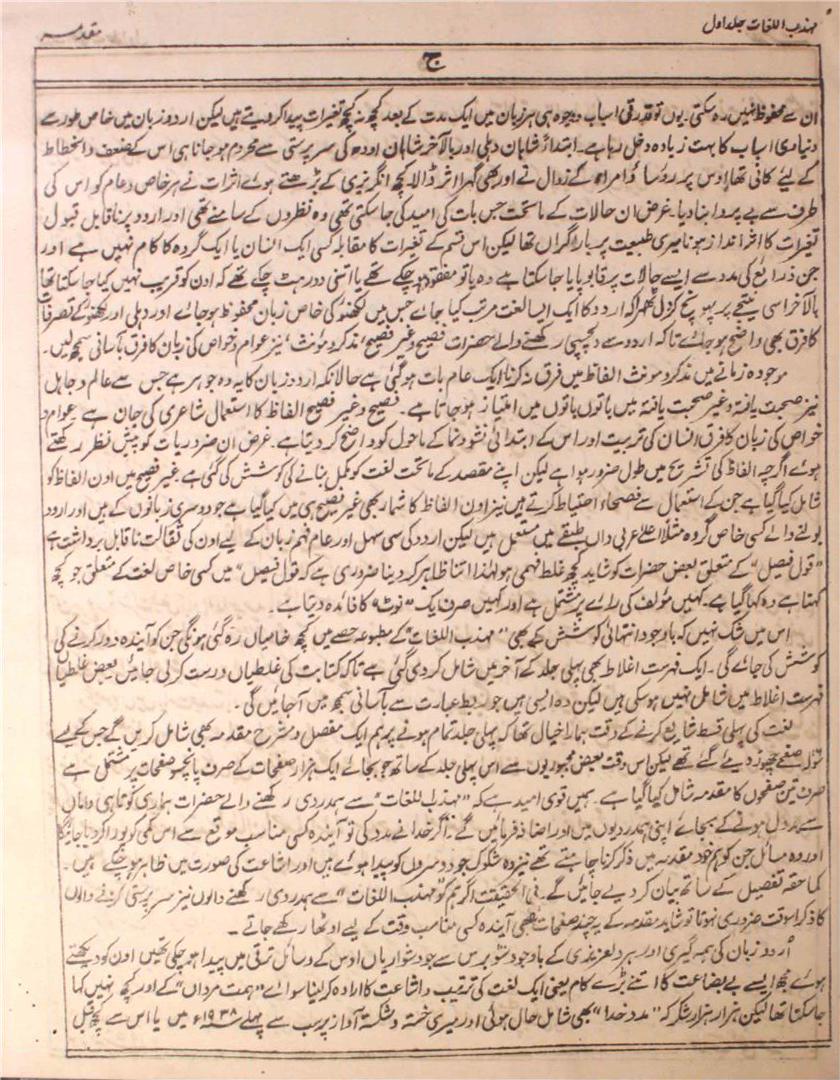 مہذب اللغات جلد اول
مقدمہ
ج
ان سے محفوظ نہیں رہ سکتی۔ یوں تو قدرتی اسباب و وجوہ ہی ہر زبان میں ایک مدت کے بعد کچھ نہ کچھ تغیرات پیدا کر دیتے ہیں لیکن اردو زبان میں خاص طور سے
دنیاوی اسباب کا بہت زیادہ دخل رہا ہے۔ ابتداءً شاہان دہلی اور بالآخر شاہان اودھ کی سرپرستی سے محروم ہو جانا ہی اس کے ضعف و انحطاط
کے لیئے کافی تھا اوس پر رؤسا و امراء کے زوال نے اور بھی گہرا اثر ڈالا کچھ انگریزی کے بڑھتے ہوئے اثرات نے ہر خاص و عام کو اس کی
طرف سے بے پروا بنا دیا۔ غرض ان حالات کے ماتحت جس بات کی امید کی جا سکتی تھی وہ نظروں کے سامنے تھی اور اردو پر ناقابل قبول
تغیرات کا اثر انداز ہونا میری طبیعت پر بار گراں تھا لیکن اس قسم کے تغیرات کا مقابلہ کسی ایک انسان یا ایک گروہ کا کام نہیں ہے اور
جن ذرایع کی مدد سے ایسے حالات پر قابو پایا جا سکتا ہے وہ یا تو مفقود ہو چکے تھے یا اتنی دور ہٹ چکے تھے کہ اون کو قریب نہیں کیا جا سکتا تھا
بالآخر اسی نتیجے پر پہونچ کر دل ٹھہرا کہ اردو کا ایک ایسا لغت مرتب کیا جائے جس میں لکھنؤ کی خاص زبان محفوظ ہو جائے اور دہلی اور لکھنؤ کے تصرفات
کا فرق بھی واضح ہو جائے تاکہ اردو سے دلچسپی رکھنے والے حضرات فصیح و غیر فصیح، مذکر و مؤنث، نیز عوام و خواص کی زبان کا فرق بآسانی سمجھ لیں۔
موجودہ زمانے میں مذکر و مونث الفاظ میں فرق نہ کرنا ایک عام بات ہو گئی ہے حالانکہ اردو زبان کا یہ وہ جوہر ہے جس سے عالم و جاہل
نیز صحبت یافتہ و غیر صحبت یافتہ میں باتوں باتوں میں امتیاز ہو جاتا ہے۔ فصیح و غیر فصیح الفاظ کا استعمال شاعری کی جان ہے عوام و
خواص کی زبان کا فرق انسان کی تربیت اور اس کے ابتدائی نشو و نما کے ماحول کو واضح کر دیتا ہے۔ غرض ان ضروریات کو پیش نظر رکھتے
ہوئے اگرچہ الفاظ کی تشریح میں طول ضرور ہوا ہے لیکن اپنے مقصد کے ماتحت لغت کو مکمل بنانے کی کوشش کی گئی ہے غیر فصیح میں اون الفاظ کو
شامل کیا گیا ہے جن کے استعمال سے فصحاء احتیاط کرتے ہیں نیز اون الفاظ کا شمار بھی غیر فصیح ہی میں کیا گیا ہے جو دوسری زبانوں کے ہیں اور اردو
بولنے والے کسی خاص گروہ مثلاً اعلےٰ عربی داں طبقے میں مستعمل ہیں لیکن اردو کی سی سہل اور عام فہم زبان کے لیے اون کی ثقالت ناقابل برداشت ہے
"قول فیصل" کے متعلق بعض حضرات کو شاید کچھ غلط فہمی ہو لہٰذا اتنا ظاہر کر دینا ضروری ہے کہ قول فیصل" میں کسی خاص لغت کے متعلق جو کچھ
کہنا ہے وہ کہا گیا ہے۔ کہیں مؤلف کی رائے پر مشتمل ہے اور کہیں صرف یک "نوٹ" کا فائدہ دیتا ہے۔
اس میں شک نہیں کہ باوجود انتہائی کوشش کے بھی "مہذب اللغات" کے مطبوعہ حصے میں کچھ خامیاں رہ گئی ہونگی جن کو آیندہ دور کرنے کی
کوشش کی جائے گی۔ ایک فہرست اغلاط بھی پہلی جلد کے آخر میں شامل کر دی گئی ہے تاکہ کتابت کی غلطیاں درست کر لی جائیں بعض غلطیاں
فہرست اغلاط میں شامل نہیں ہو سکی ہیں لیکن وہ ایسی ہیں جو ربط عبارت سے بآسانی سمجھ میں آ جائیں گی۔
لغت کی پہلی قسط شایع کرنے کے وقت ہمارا خیال تھا کہ پہلی جلد تمام ہونے پر ہم ایک مفصل و مشرح مقدمہ بھی شامل کریں گے جس کے لیے
سولہ صفحے چھوڑ دیے گئے تھے لیکن اس وقت بعض مجبوریوں سے اس پہلی جلد کے ساتھ جو بجائے ایک ہزار صفحات کے صرف پانچسو صفحات پر مشتمل ہے
صرف تین صفحوں کا مقدمہ شامل کیا گیا ہے۔ ہمیں قوی امید ہے کہ "مہذب اللغات" سے ہمدردی رکھنے والے حضرات ہماری کوتاہی داماں
سے بد دل ہونے کے بجائے اپنی ہمدردیوں میں اور اضافہ فرمائیں گے۔ اگر خدا نے مدد کی تو آیندہ کسی مناسب موقع سے اس کمی کو پورا کر دیا جائیگا
اور وہ مسائل جن کو ہم خود مقدمہ میں ذکر کرنا چاہتے تھے نیز وہ شکوک جو دوسروں کو پیدا ہوئے ہیں اور اشاعت کی صورت میں ظاہر ہو چکے ہیں۔
کماحقہ تفصیل کے ساتھ بیان کر دیے جائیں گے۔ فی الحقیقت اگر ہم کو "مہذب اللغات" سے ہمدردی رکھنے والوں نیز سرپرستی کرنے والوں
کا ذکر اسوقت ضروری نہ ہوتا تو شاید مقدمہ کے یہ چند صفحات بھی آیندہ کسی مناسب وقت کے لیے اوٹھا رکھے جاتے۔
اُردو زبان کی ہمہ گیری اور ہردلعزیزی کے باوجود سو برس سے جو دشواریاں اوس کے وسائل ترقی میں پیدا ہو چکی تھیں اون کو دیکھتے
ہوئے مجھ ایسے بے بضاعت کا اتنے بڑے کام یعنی ایک لغت کی ترتیب و اشاعت کا ارادہ کر لینا سوائے "ہمت مرداں" کے اور کچھ نہیں کہا
جا سکتا تھا لیکن ہزار ہزار شکر کہ "مدد خدا" بھی شامل حال ہوئی اور میری خستہ و شکستہ آواز پر سب سے پہلے ۱۹۳۸ء میں یا اس سے کچھ قبل